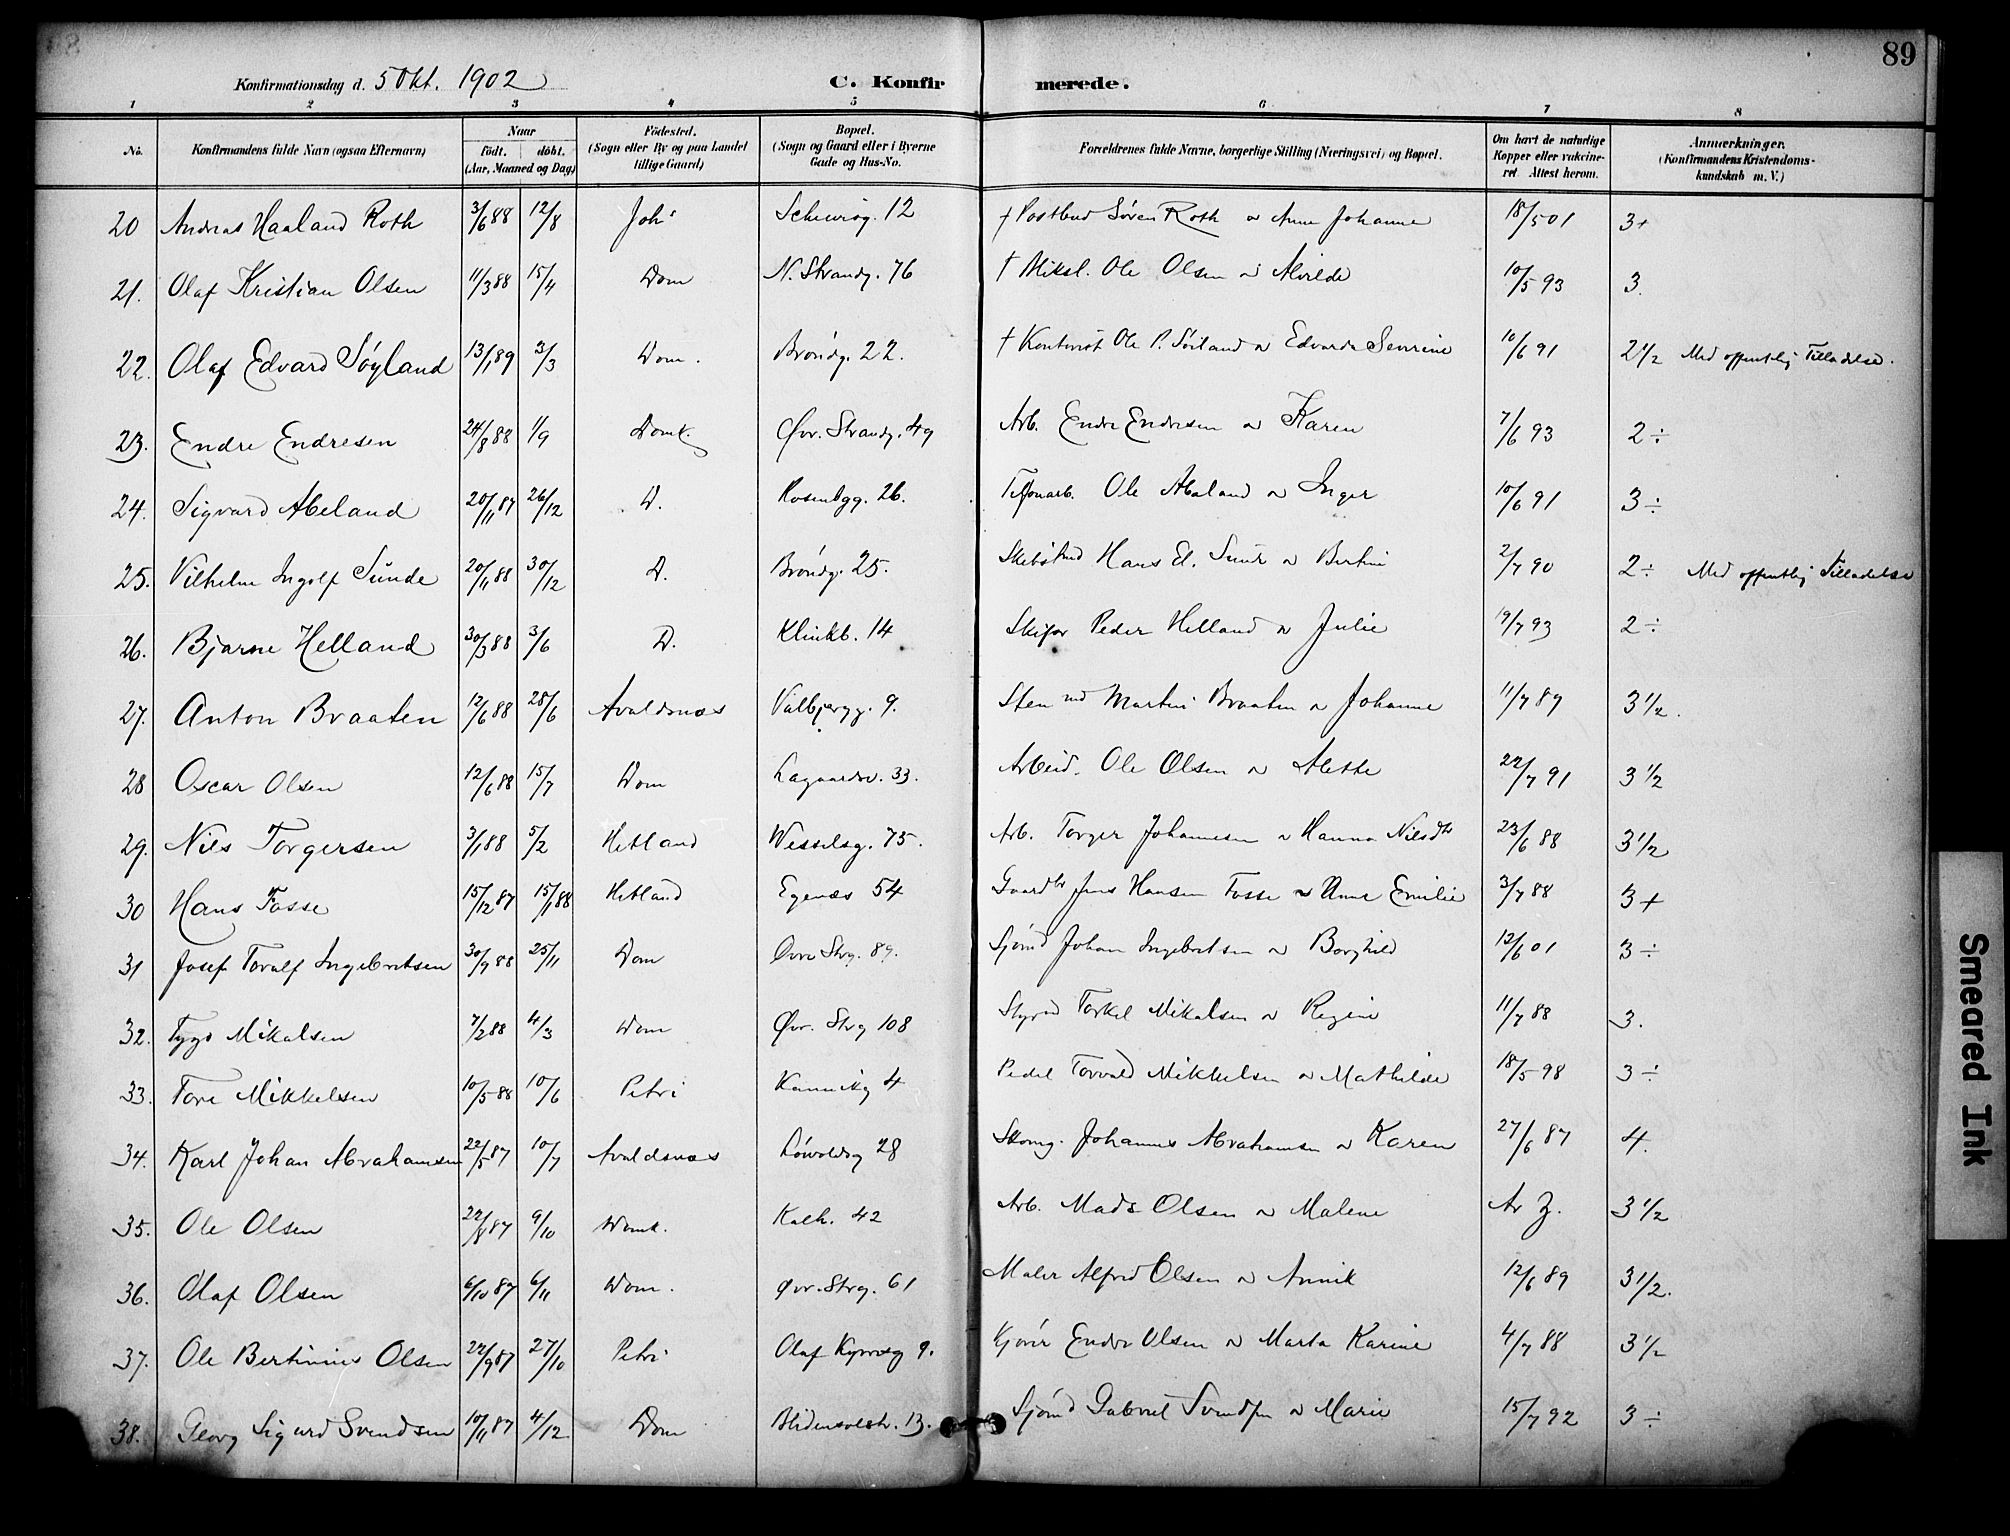 89
Konfirmationsdag d. 5 Okt. 1902 C. Konfir merede.
1 2 3 4 5 6 7 8
No. Konfirmandens fulde Navn (ogsaa Efternavn) Naar født. døbt. (Aar, Maaned og Dag) Fødested. (Sogn eller By og paa Landet tillige Gaard) Bopæl. (Sogn og Gaard eller i Byerne Gade og Hus-No. Forældrenes fulde Navne, borgerlige Stilling (Næringsvei) og Bopæl. Om havt de naturlige Kopper eller vakcineret Attest herom. Anmærkninger. (Konfirmandens Kristendomskundskab m. V.)
20 Andreas Haaland Roth 3/6 88 12/8 Joh's 12 † Postbud Søren Roth & Anne Johanne 18/5 01 3+
21. Olaf Kristian Olsen 11/3 88 15/4 Dom N. Strandg. 76 † Ole Olsen & Alvilde 10/5 93 3.
22. Olaf Edvard Søyland 13/1 89 3/3 Dom. Brøndg. 22. † Kontorist Ole P. Søiland & Edvarda Severine 10/6 91 2 1/2 Med offentlig Tilladelse.
23. Endre Endresen 24/8 88 1/9 Domk. Øvr. Strandg. 49 Arb. Endre Endresen & Karen 7/6 93 2 ÷
24. Sigvard Abeland 20/11 87 26/12 D. Rosenbgg. 26. Ole Abeland & Inger 10/6 91 3 ÷
25. Vilhelm Ingolf Sunde 20/11 88 30/12 D. Brøndg. 25. Hans El. Sunde & Bertine 2/7 90 2 ÷ Med offentlig Tilladelse
26. Bjarne Helland 30/3 88 3/6 D. Klinkb. 14 Skifor Peder Helland & Julie 19/7 93 2 ÷
27. Anton Braaten 12/6 88 28/6 Avaldsnæs Valbjergg. 9. Martin Braaten & Johanne 11/7 89 3 1/2.
28 Oscar Olsen 12/6 88 15/7 Dom Lagaardsv. 33. Arbeid. Ole Olsen & Mette 22/7 91 3 1/2
29. Nils Torgersen 3/1 88 5/2 Hetland Wesselsg. 75. Arb. Torger Johannesen & Hanna Nilsdtr 23/6 88 3 1/2
30 Hans Fosse 15/12 87 15/1 88 Hetland Egenæs 54 Gaardbr Jens Hansen Fosse & Anne Emilie 3/7 88 3+
31 Josef Toralf Ingebretsen 30/9 88 25/11 Dom Øvre Strg. 89. Sjømd Johan Ingebretsen & Borghild 12/6 01 3 ÷
32. Mikalsen 7/2 88 4/3 Dom Øvr. Strg 108 Styrmd Torkel Mikalsen & Regine 11/7 88 3.
33. Tore Mikkelsen 10/5 88 10/6 Petri Kannikg 4 Pedel Torvald Mikkelsen & Mathilde 18/5 98 3 ÷
34. Karl Johan Abrahamsen 22/5 87 10/7 Avaldsnæs Løvoldsg 28 Skomg. Johannes Abrahamsen & Karen 27/6 87 4.
35. Ole Olsen 22/8 87 9/10 Domk. Kalh. 42 Arb. Mads Olsen & Malene 3 1/2
36. Olaf Olsen 6/10 87 6/11 Dom. Øvr. Strg. 61 Maler Alfred Olsen & Annik 12/6 89 3 1/2.
37. Ole Bertinius Olsen 22/9 87 27/10 Petri Olaf Kyrresg 9. Kjører Endre Olsen & Marta Karine 4/7 88 3 1/2
38. Georg Sigurd Svendsen 10/11 87 4/12 Dom Blidensolstr. 13. Sjømd Gabriel Svendsen & Marie 15/7 92 3 ÷
Smeared Ink